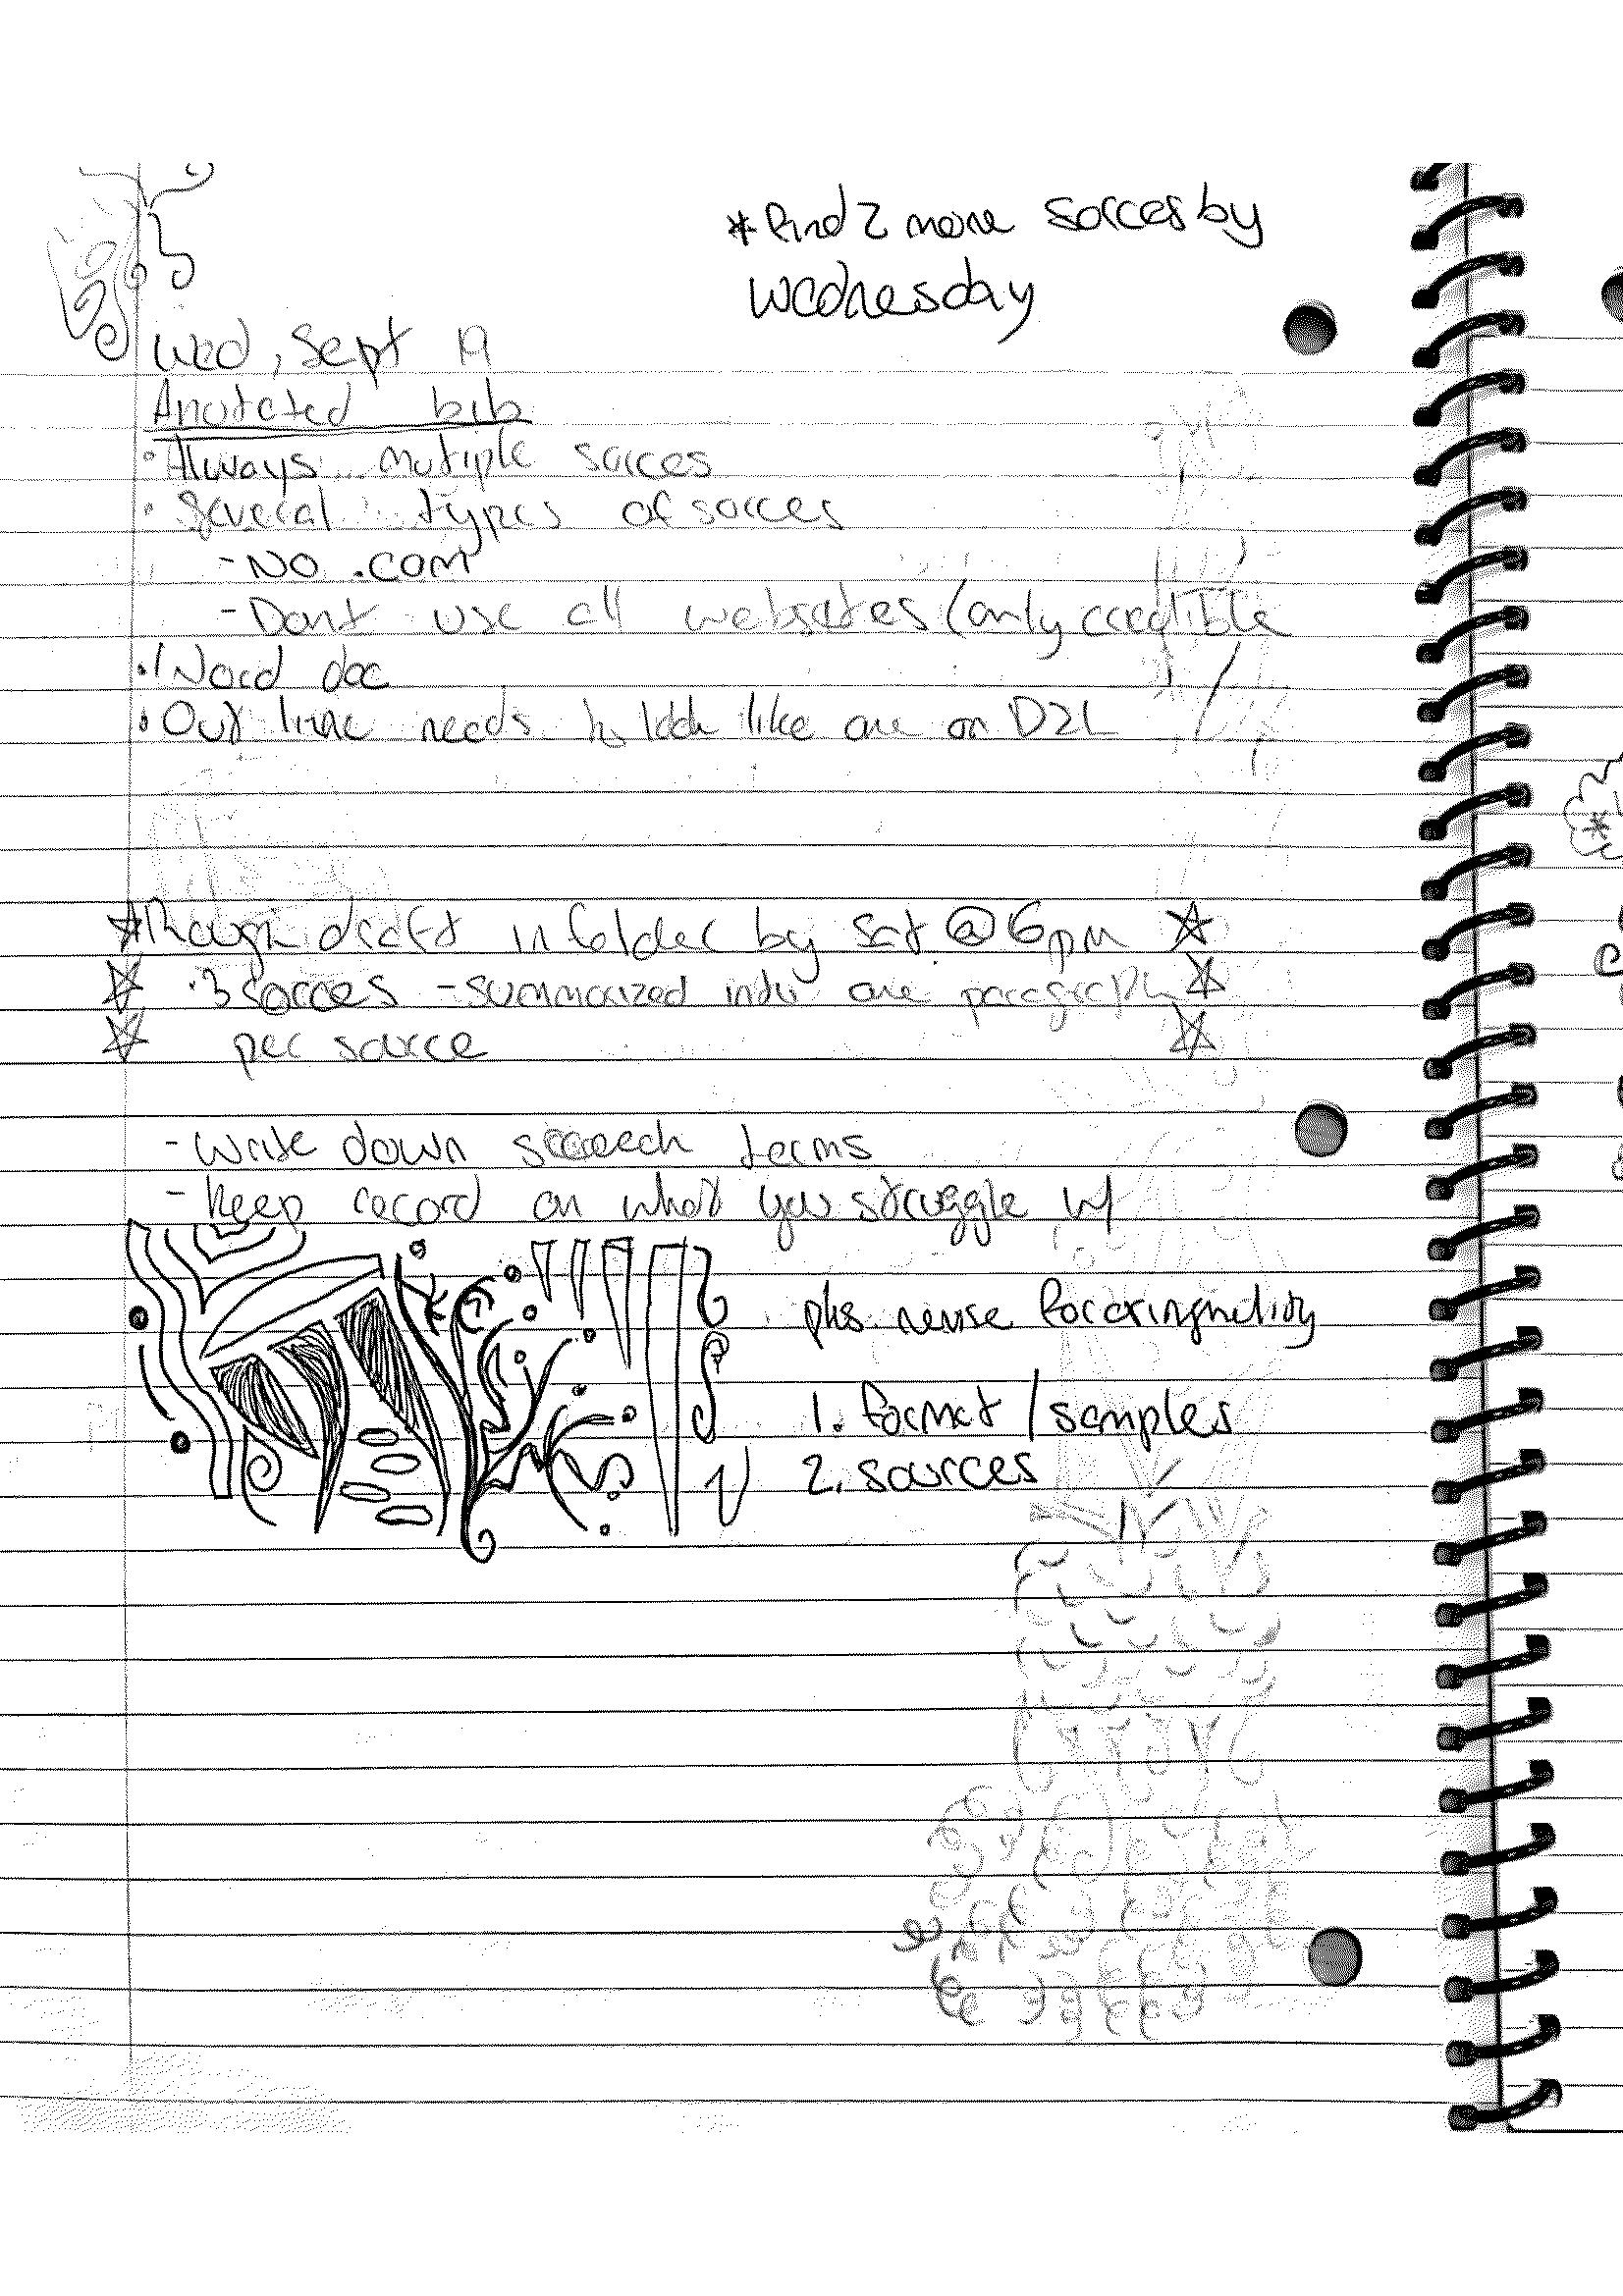 *find 2 more sorces by
Wednesday
Wed, Sept 19
Anotated bib
• Always mutiple sorces
• Several types of sorces
- No .com
- Dont use all websites (only credible
• 1 Word doc
• Out line needs to look like one on D2L
☆ Rough draft in folder by sat @ 6pm ☆
☆ • 3 sorces - summarized into one paragraph ☆
☆ per source ☆
- Write down terms
- Keep record on what you struggle w/
revise for
1. format / samples
2. sources